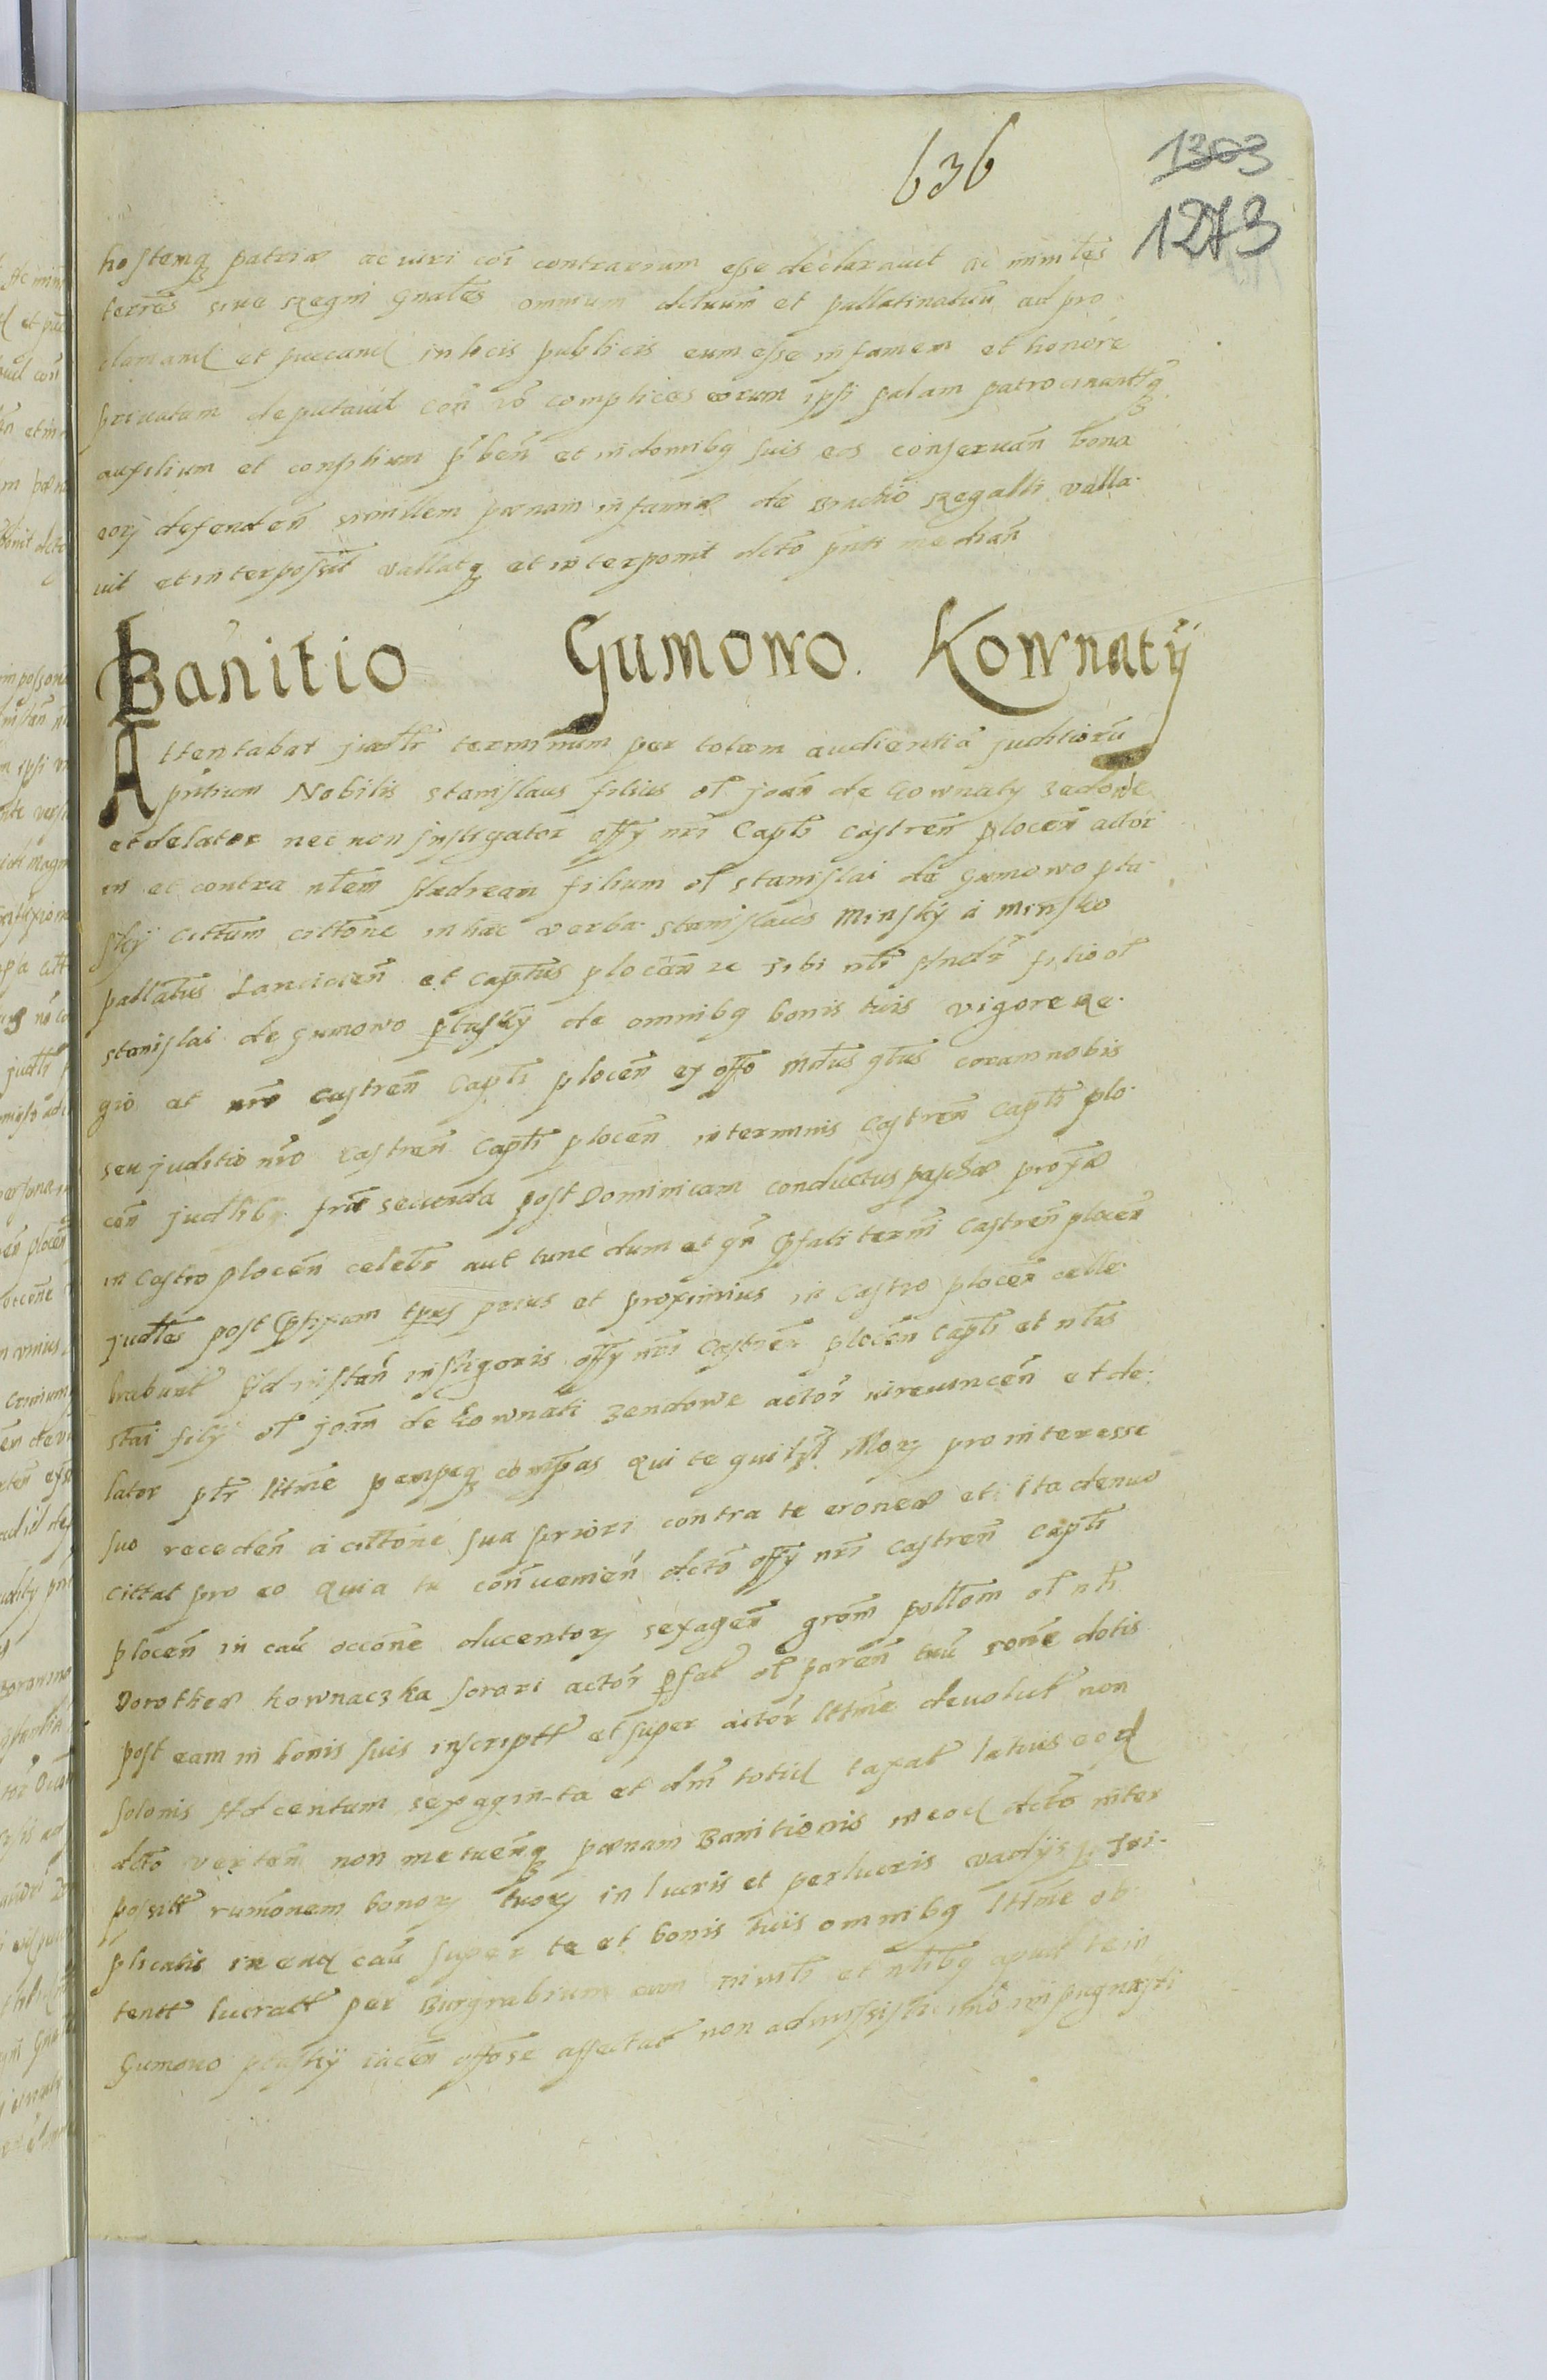 636
1303
1273
hostemq patriæ ac viri coi contrarium esse declarauit ac minrles
terres siue Regni Gnales omnium dcluum et pallatinatuum ad pro
clamand et puccand in locis publicis eum esse infamem et honore
priuatum deputauit con vo complices eorum ipsi palam patrocinanttq
auxilium et consilium pben et in domibq suis eos conseruan bona
eorz defenden similem pænam infamiæ de brachio Regalli valla
uit et interpossuit vallatq et interponit dcto pnti median
Banitio Gumowo. Kownatÿ
Attentabat judtr terminum per totam audientiā juditiorū
pntium Nobilis Stanislaus filius ol joan de Kownaty Zedowe
et delator nec non instigator offy nri Capti Castren plocen actor
in et contra nlem Andream filium ol Stanislai de Gumowo pta
skÿ cittum cittone in hæc verba Stanislaus Minskÿ a Minsko
pallatus Lancicien et Captus plocen Tibi nli Andr filio ol
Stanislai de Gumowo ptaskÿ de omnibq bonis tuis vigore Re
gio et nro Castren Capti plocen ex offo Mdtus qtus coram nobis
seu juditio nro Castren Capti plocen in terminis Castren Capti plo
cen judlibq fria secunda post Dominicam conductus paschæ proxa
in Castro plocen celebr aut tunc dum et qn pfati termi Castren plocen
judles post pfixum tpus prius et proximius in Castro plocen celle
brabunt ad instan instigoris offy nri Castren plocen Capti et nlis
Stai filÿ ol joan de Kownati Zendowe actor circumcen et de
lator ptr lttme pempq compas qui te pro interesse
suo receden a cittone sua priori contra te eroneæ et ita denuo
cittat pro eo quia tu conuenien dcto offy nri Castren Capti
plocen in cau occone ducentorz sexagen grom polom ol nli
Dorotheæ Kownaczka sorori actor pfat ol paren tuū rone dotis
post eam in bonis suis inscriptt et super actor lttme deuolut non
solonis centum sexaginta et dni totid taxat latius eod
dcto verten non metuenq pænam Banitionis in eod dcto inter
positt rumonem bonorz tuorz in lucris et perlucris vadÿs tri
plicatis in ead cau super te et bonis tuis omnibq lttme ob
tentt lucratt per Burgrabium cum minli et nlibq apud te in
Gumowo ptaskÿ iacen offose affectat non admissisti imo inpugnasti